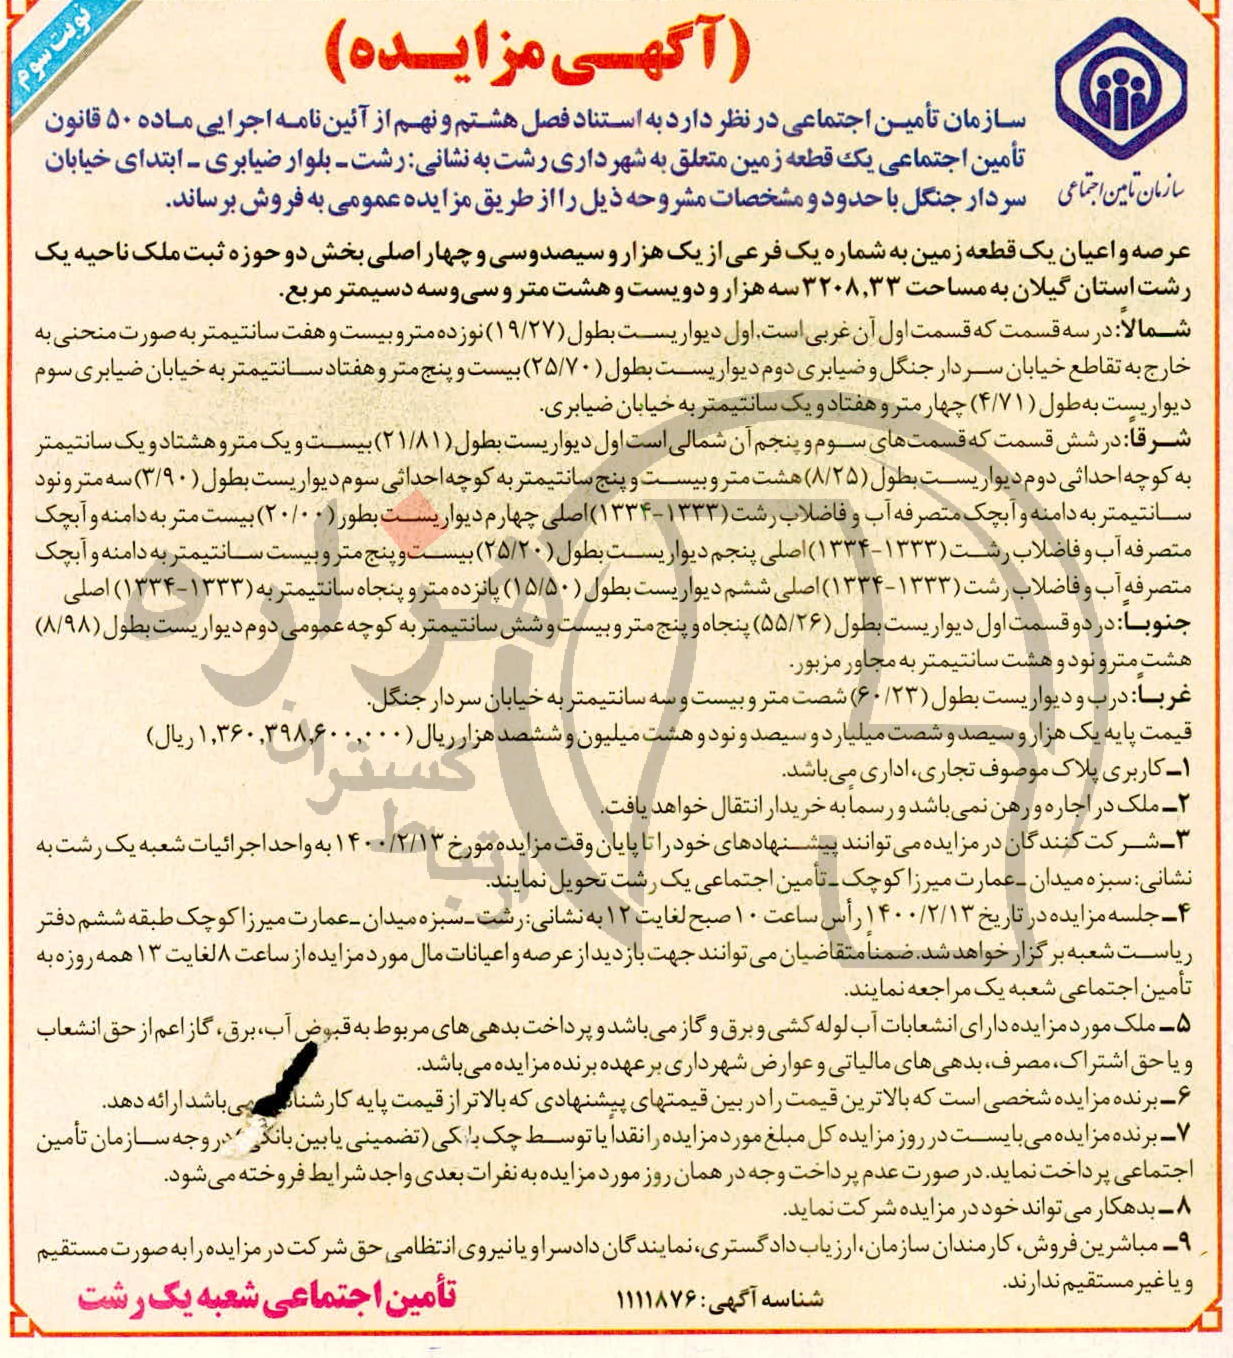 نوبت سوم
(آگهـی مزایـده)
سازمان تأمین اجتماعی
سـازمان تأمیـن اجتماعی در نظر دارد به اسـتناد فصل هشـتم و نهـم از آئین نامـه اجرایی مـاده ۵۰ قانون
تأمین اجتماعی یک قطعه زمین متعلق به شهرداری رشت به نشانی: رشت ـ بلوار ضیابری ـ ابتدای خیابان
سردار جنگل با حدود و مشخصات مشروحه ذیل را از طریق مزایده عمومی به فروش برساند.
عرصه و اعیان یک قطعه زمین به شماره یک فرعی از یک هزار و سیصدوسی و چهار اصلی بخش دو حوزه ثبت ملک ناحیه یک
رشت استان گیلان به مساحت ۳۲۰۸,۳۳ سه هزار و دویست و هشت متر و سی‌وسه دسیمتر مربع.
شـمالاً: در سه قسمت که قسمت اول آن غربی است. اول دیواریسـت بطول (۱۹/۲۷) نوزده متر و بیست و هفت سانتیمتر به صورت منحنی به
خارج به تقاطع خیابان سـردار جنگل و ضیابری دوم دیواریسـت بطول (۲۵/۷۰) بیست و پنج متر و هفتاد سـانتیمتر به خیابان ضیابری سوم
دیواریست به‌طول (۴/۷۱) چهار متر و هفتاد و یک سانتیمتر به خیابان ضیابری.
شـرقاً: در شش قسمت که قسمت‌های سـوم و پنجم آن شمالی است اول دیواریست بطول (۲۱/۸۱) بیسـت و یک متر و هشتاد و یک سانتیمتر
به کوچه احداثی دوم دیواریسـت بطول (۸/۲۵) هشت متر و بیسـت و پنج سانتیمتر به کوچه احداثی سوم دیواریست بطول (۳/۹۰) سه متر و نود
سـانتیمتر به دامنه و آبچک متصرفه آب و فاضلاب رشت (۱۳۳۳-۱۳۳۴) اصلی چهارم دیواریسـت بطور (۲۰/۰۰) بیست متر به دامنه و آبچک
متصرفه آب و فاضلاب رشـت (۱۳۳۳-۱۳۳۴) اصلی پنجم دیواریسـت بطول (۲۵/۲۰) بیسـت‌وپنج متر و بیست سـانتیمتر به دامنه و آبچک
متصرفه آب و فاضلاب رشت (۱۳۳۳-۱۳۳۴) اصلی ششم دیواریست بطول (۱۵/۵۰) پانزده متر و پنجاه سانتیمتر به (۱۳۳۳-۱۳۳۴) اصلی
جنوبـاً: در دو قسمت اول دیواریست بطول (۵۵/۲۶) پنجاه و پنج متر و بیست و شش سانتیمتر به کوچه عمومی دوم دیواریست بطول (۸/۹۸)
هشت مترو نود و هشت سانتیمتر به مجاور مزبور.
غربـاً: درب و دیواریست بطول (۶۰/۲۳) شصت متر و بیست و سه سانتیمتر به خیابان سردار جنگل.
قیمت پایه یک هزار و سیصد و شصت میلیارد و سیصد و نود و هشت میلیون و ششصد هزار ریال (۱,۳۶۰,۳۹۸,۶۰۰,۰۰۰ ریال)
۱ـ کاربری پلاک موصوف تجاری، اداری می‌باشد.
۲ـ ملک در اجاره و رهن نمی‌باشد و رسماً به خریدار انتقال خواهد یافت.
۳ـ شـرکت کنندگان در مزایده می‌توانند پیشـنهادهای خود را تا پایان وقت مزایده مورخ ۱۴۰۰/۲/۱۳ به واحد اجرائیات شعبه یک رشت به
نشانی: سبزه میدان ـ عمارت میرزا کوچک ـ تأمین اجتماعی یک رشت تحویل نمایند.
۴ـ جلسه مزایده در تاریخ ۱۴۰۰/۲/۱۳ رأس ساعت ۱۰ صبح لغایت ۱۲ به نشانی: رشت ـ سبزه میدان ـ عمارت میرزا کوچک طبقه ششم دفتر
ریاسـت شعبه برگزار خواهد شد. ضمناً متقاضیان می‌توانند جهت بازدید از عرصه و اعیانات مال مورد مزایده از ساعت ۸ لغایت ۱۳ همه روزه به
تأمین اجتماعی شعبه یک مراجعه نمایند.
۵ـ ملک مورد مزایده دارای انشعابات آب لوله کشی و برق و گاز می‌باشد و پرداخت بدهی های مربوط به قبوض آب، برق، گاز اعم از حق انشعاب
و یا حق اشتراک، مصرف، بدهی های مالیاتی و عوارض شهرداری بر عهده برنده مزایده می‌باشد.
۶ـ برنده مزایده شخصی است که بالاترین قیمت را در بین قیمتهای پیشنهادی که بالاتر از قیمت پایه می‌باشد ارائه دهد.
۷ـ برنده مزایده می‌بایسـت در روز مزایده کل مبلغ مورد مزایده را نقداً یا توسـط چک بانکی (تضمینی یا بین بانکی) در وجه سـازمان تأمین
اجتماعی پرداخت نماید. در صورت عدم پرداخت وجه در همان روز مورد مزایده به نفرات بعدی واجد شرایط فروخته می‌شود.
۸ ـ بدهکار می تواند خود در مزایده شرکت نماید.
۹ـ مباشرین فروش، کارمندان سازمان، ارزیاب دادگستری، نمایندگان دادسرا و یا نیروی انتظامی حق شرکت در مزایده را به صورت مستقیم
و یا غیر مستقیم ندارند.
شناسه آگهی: ۱۱۱۱۸۷۶
تأمین اجتماعی شعبه یک رشت
هزاره
گسترش
ارتباط